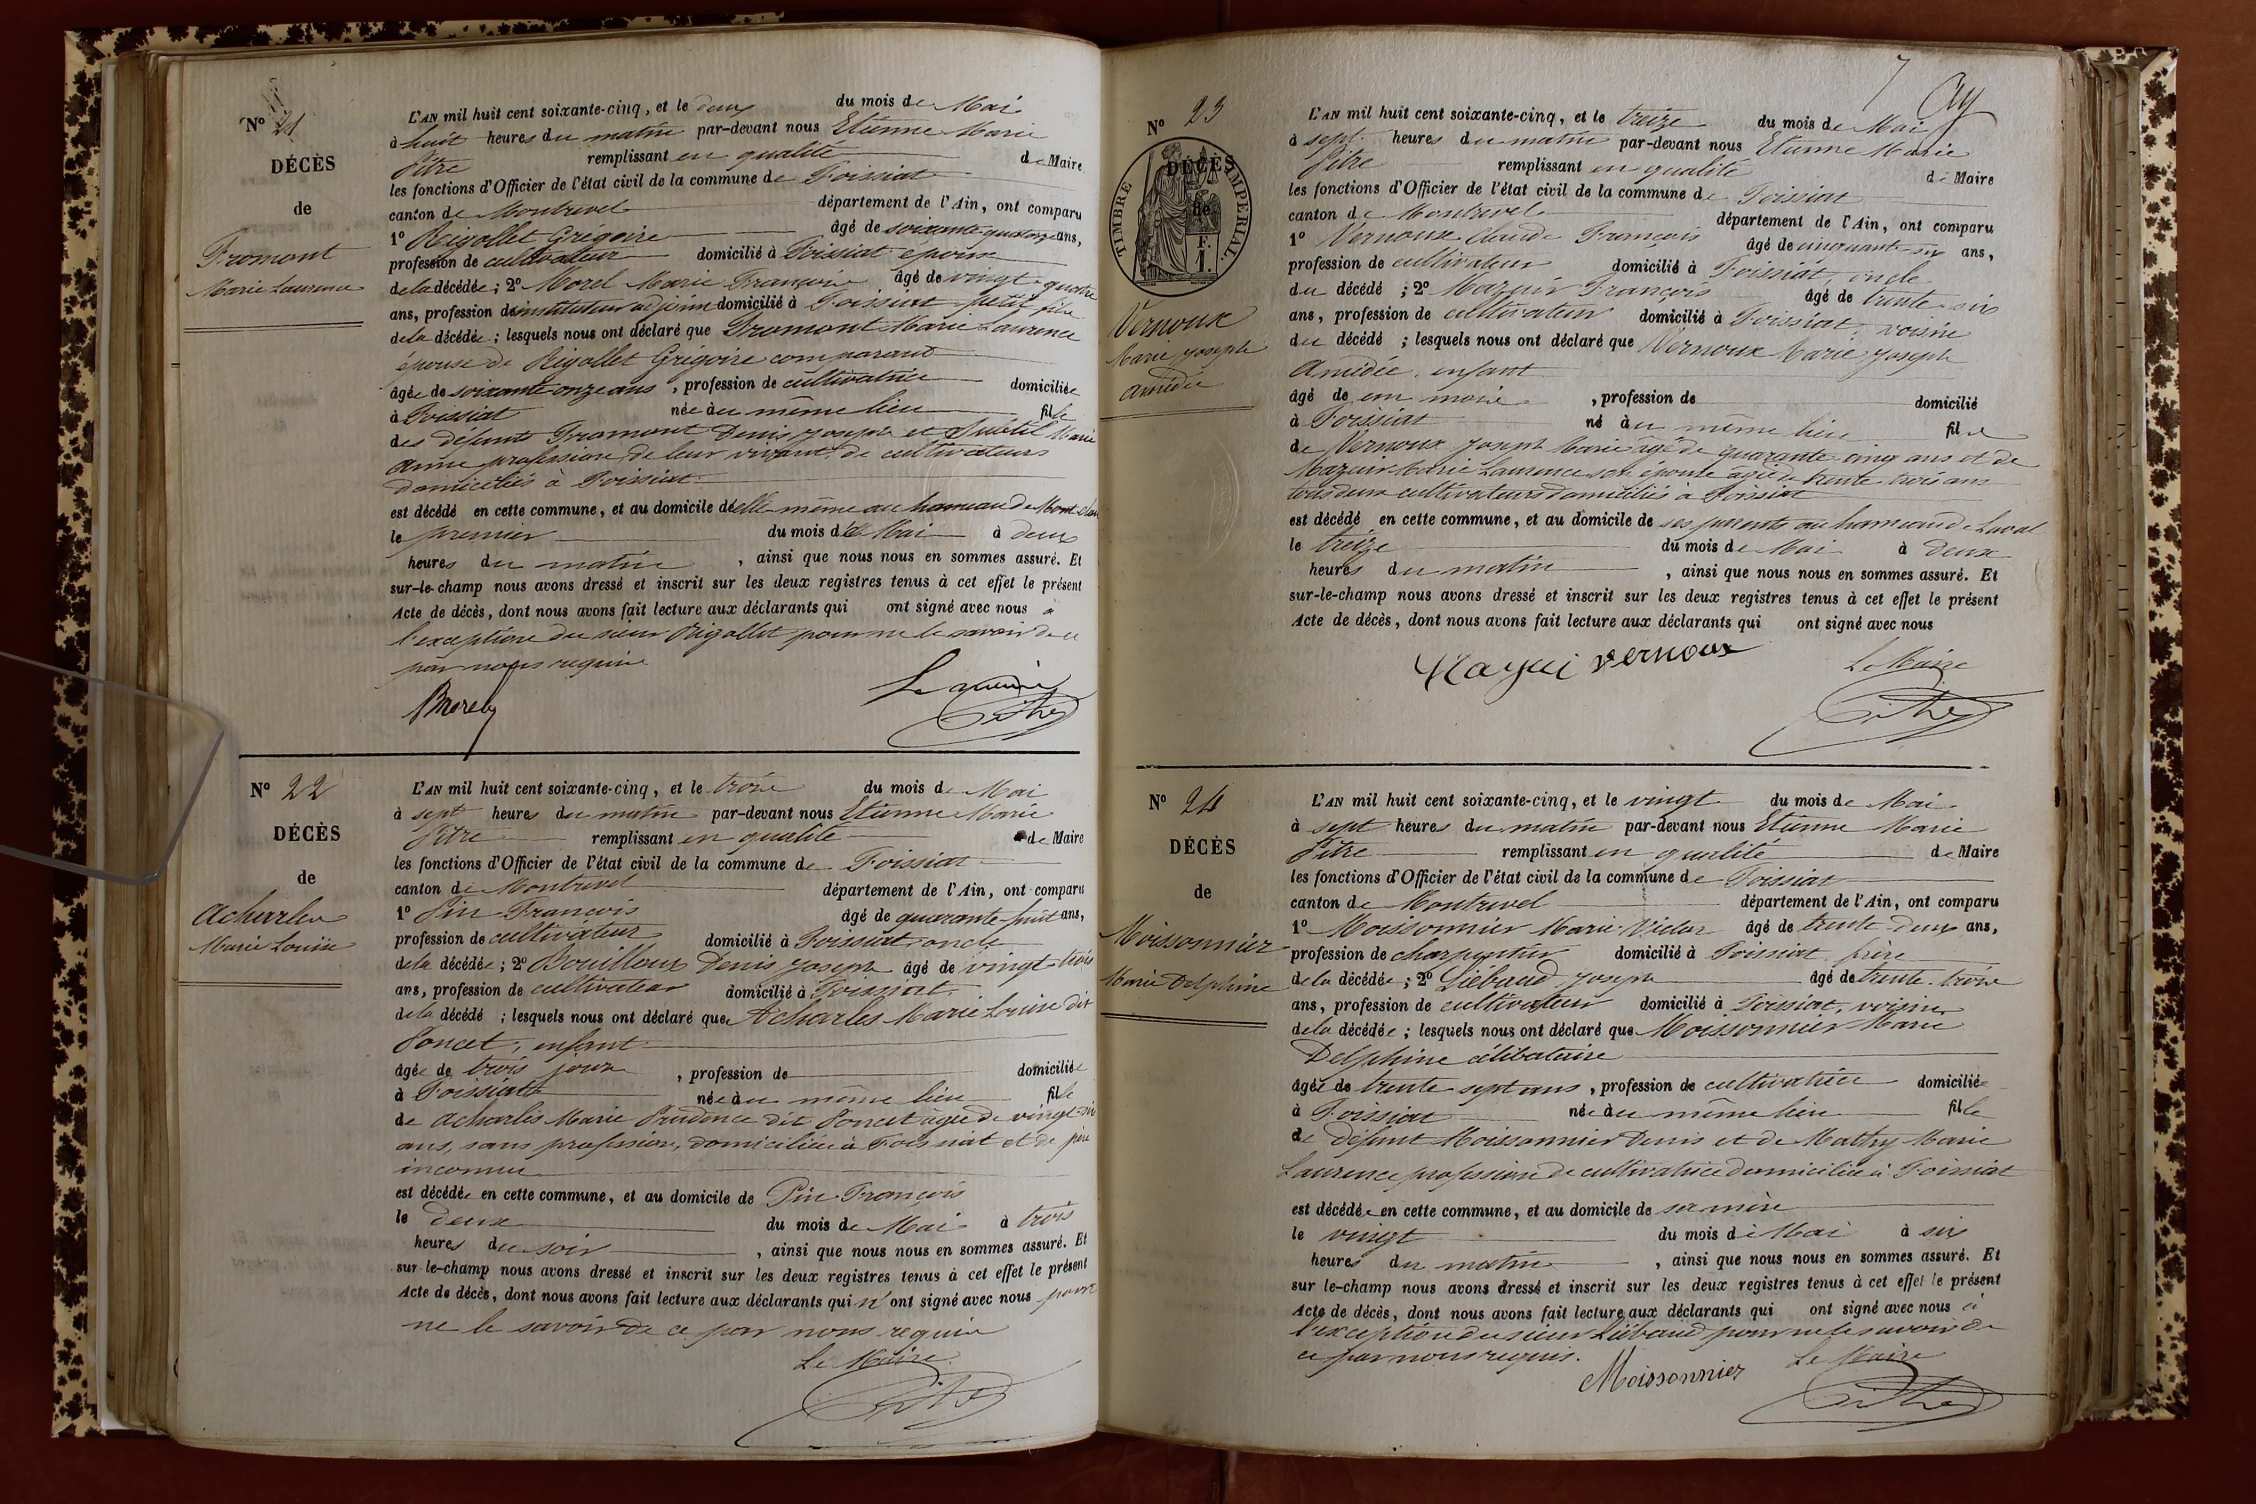 N° 21
DÉCÈS
de
Fromont
Marie Laurence
L'AN mil huit cent soixante-cinq, et le deux du mois de Mai
à huit heures du matin par-devant nous Etienne Marie
Pitre remplissant en qualité de Maire
les fonctions d'Officier de l'état civil de la commune de Foissiat
canton de Montrevel département de l'Ain, ont comparu
1° Rigollet Grégoire âgé de soixante quatorze ans,
profession de cultivateur domicilié à Foissiat époux
de la décédée ; 2° Morel Marie François âgé de vingt-quatre
ans, profession d'instituteur adjoint domicilié à Foissiat petit fils
de la décédée ; lesquels nous ont déclaré que Fromont Marie Laurence
épouse de Rigollet Grégoire comparant
âgée de soixante onze ans, profession de cultivatrice domiciliée
à Foissiat née au même lieu fille
des défunts Fromont Denis Joseph et Marie
Anne profession de leur vivant de cultivateurs
domiciliés à Foissiat
est décédé en cette commune, et au domicile d'elle même au hameau de
le premier du mois de Mai à deux
heures du matin, ainsi que nous nous en sommes assuré. Et
sur-le-champ nous avons dressé et inscrit sur les deux registres tenus à cet effet le présent
Acte de décès, dont nous avons fait lecture aux déclarants qui ont signé avec nous à
l'exception du sieur Rigollet pour ne le savoir de ce
par nous requis
Morel
Le maire
Pitre
N° 22
DÉCÈS
de
Acharles
Marie Louise
L'AN mil huit cent soixante-cinq, et le trois du mois de Mai
à sept heures du matin par-devant nous Etienne Marie
Pitre remplissant en qualité de Maire
les fonctions d'Officier de l'état civil de la commune de Foissiat
canton de Montrevel département de l'Ain, ont comparu
1° Pin François âgé de quarante-huit ans,
profession de cultivateur domicilié à Foissiat oncle
de la décédée ; 2° Bouilloux Denis Joseph âgé de vingt trois
ans, profession de cultivateur domicilié à Foissiat
de la décédé ; lesquels nous ont déclaré que Acharles Marie Louise dit
Poncet, enfant
âgée de trois jours, profession de domiciliée
à Foissiat née au même lieu fille
de Acharles Marie Prudence dit Poncet âgée de vingt-six
ans, sans profession, domiciliée à Foissiat et de père
inconnu
est décédée en cette commune, et au domicile de Pin François
le deux du mois de Mai à trois
heures du soir, ainsi que nous nous en sommes assuré. Et
sur-le-champ nous avons dressé et inscrit sur les deux registres tenus à cet effet le présent
Acte de décès, dont nous avons fait lecture aux déclarants qui n'ont signé avec nous pour
ne le savoir de ce par nous requis
Le Maire
Pitre
7
N° 23
TIMBRE IMPERIAL
F.
1.
DÉCÈS
de
Vernoux
Marie Joseph
Amédée
L'AN mil huit cent soixante-cinq, et le treize du mois de Mai
à sept heures du matin par-devant nous Etienne Marie
Pitre remplissant en qualité de Maire
les fonctions d'Officier de l'état civil de la commune de Foissiat
canton de Montrevel département de l'Ain, ont comparu
1° Vernoux Claude François âgé de cinquante-six ans,
profession de cultivateur domicilié à Foissiat, oncle
du décédé ; 2° Mazuir François âgé de trente-six
ans, profession de cultivateur domicilié à Foissiat, voisin
du décédé ; lesquels nous ont déclaré que Vernoux Marie Joseph
Amédée, enfant
âgé de un mois, profession de domicilié
à Foissiat né au même lieu fils
de Vernoux Joseph Marie âgé de quarante-cinq ans et de
Mazuir Marie Laurence son épouse âgée de trente trois ans
tous deux cultivateurs domiciliés à Foissiat
est décédé en cette commune, et au domicile de ses parents au hameau de Laval
le treize du mois de Mai à deux
heures du matin, ainsi que nous nous en sommes assuré. Et
sur-le-champ nous avons dressé et inscrit sur les deux registres tenus à cet effet le présent
Acte de décès, dont nous avons fait lecture aux déclarants qui ont signé avec nous
vernoux
Le Maire
Pitre
N° 24
DÉCÈS
de
Moissonnier
Marie Delphine
L'AN mil huit cent soixante-cinq, et le vingt du mois de Mai
à sept heures du matin par-devant nous Etienne Marie
Pitre remplissant en qualité de Maire
les fonctions d'Officier de l'état civil de la commune de Foissiat
canton de Montrevel département de l'Ain, ont comparu
1° Moissonnier Marie Victor âgé de trente-deux ans,
profession de charpentier domicilié à Foissiat, frère
de la décédée ; 2° Liébaud Joseph âgé de trente-trois
ans, profession de cultivateur domicilié à Foissiat, voisin
de la décédée ; lesquels nous ont déclaré que Moissonnier Marie
Delphine célibataire
âgée de trente sept ans, profession de cultivatrice domiciliée
à Foissiat née au même lieu fille
de défunt Moissonnier Denis et de Mathy Marie
Laurence profession de cultivatrice domiciliée à Foissiat
est décédée en cette commune, et au domicile de sa mère
le vingt du mois de Mai à six
heures du matin, ainsi que nous nous en sommes assuré. Et
sur le-champ nous avons dressé et inscrit sur les deux registres tenus à cet effet le présent
Acte de décès, dont nous avons fait lecture aux déclarants qui ont signé avec nous à
l'exception du sieur Liébaud pour ne le savoir de
ce par nous requis.
Moissonnier
Le Maire
Pitre